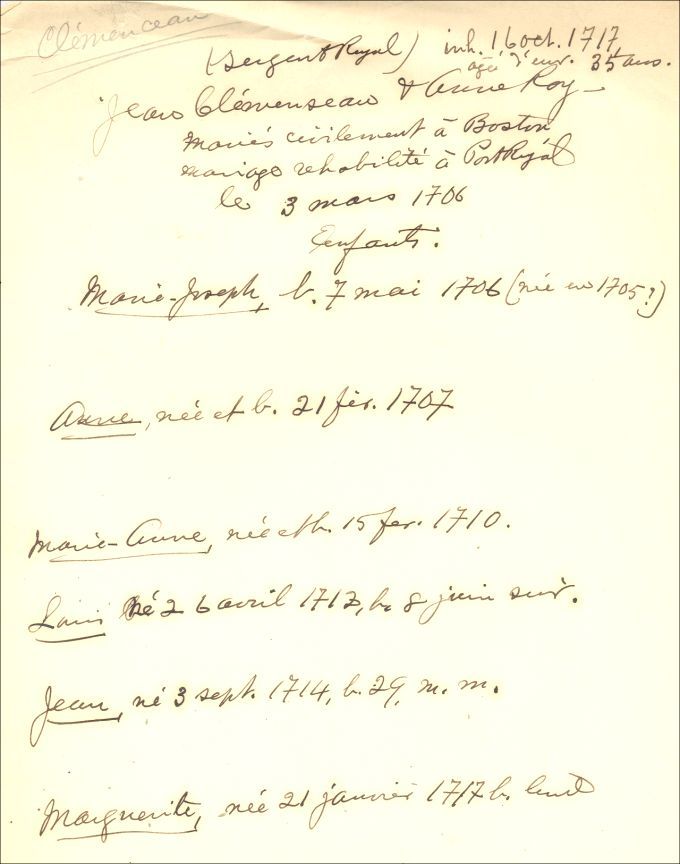 Clémenceau
(Sergent Royal) inh. 16 oct. 1717,
agé d'env. 35 ans.
Jean Clémenseau & Anne Roy -
mariés civilement à Boston
mariage rehabilité à Port Royal
le 3 mars 1706
Enfants.
Marie-Joseph, b. 7 mai 1706 (née en 1705?)
Anne, née et b. 21 fév. 1707
Marie-Anne, née et b. 15 fev. 1710.
Louis né 26 avril 1712, b. 8 juin suiv.
Jean, né 3 sept. 1714, b. 29, m. m.
Marguerite, née 21 janvier 1717 b. lend